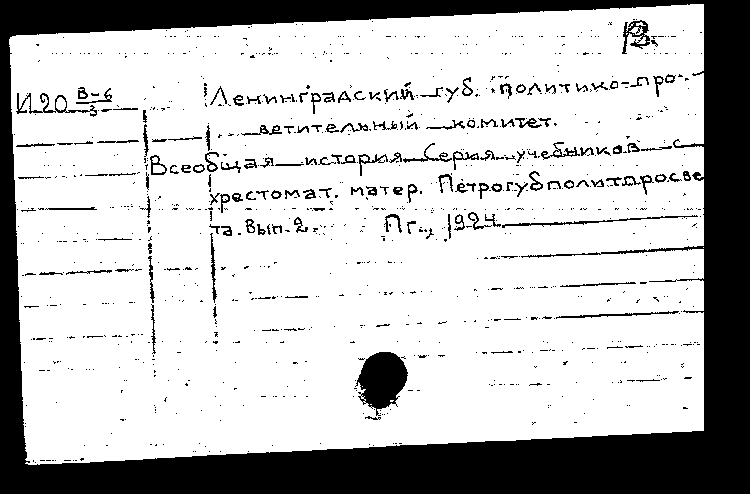 В.
И20 В-6/3 Ленинградский губ. политико-про-
ветительный комитет.
Всеобщая история Серия учебников с
хрестомат. матер. Петрогубполитпросве
та. Вып. 2. Пг., 1924